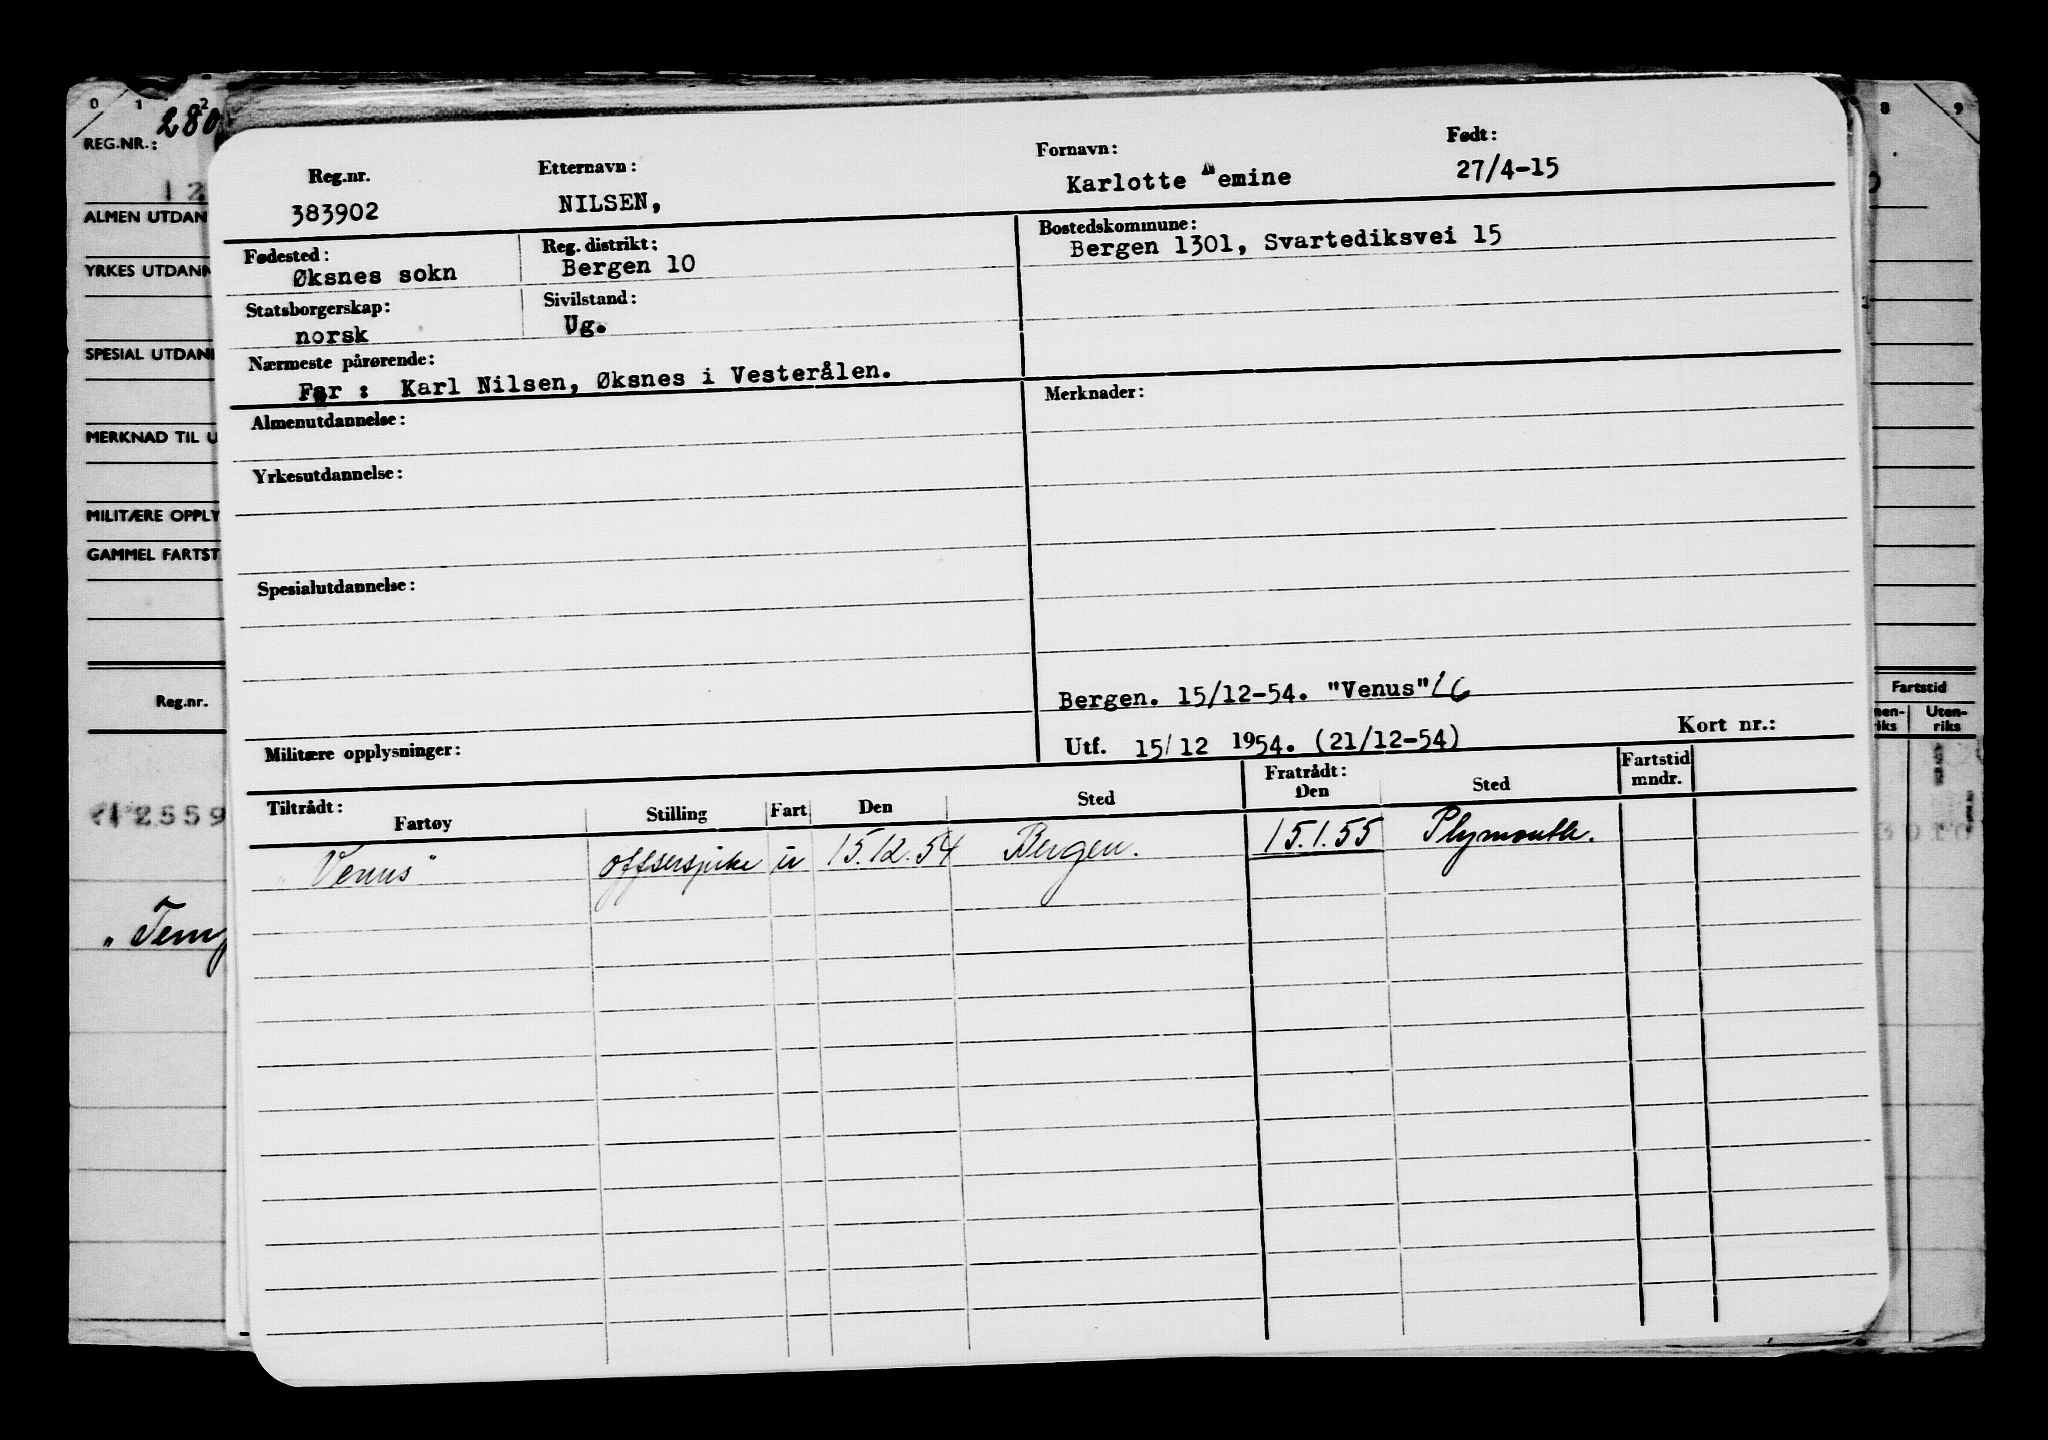 0 1 2
280
REG.NR.:
12
ALMEN UTDAN
YRKES UTDANN
SPESIAL UTDANN
MERKNAD TIL U
MILITÆRE OPPLY
GAMMEL FARTST
Reg.nr.
2559
8 9
Fartstid
Uten-
riks
Reg.nr. Etternavn: Fornavn: Født:
383902 NILSEN, Karlotte emine 27/4-15
Fødested: Reg. distrikt: Bostedskommune:
Øksnes sokn Bergen 10 Bergen 1301, Svartediksvei 15
Statsborgerskap: Sivilstand:
norsk Ug.
Nærmeste pårørende:
Far : Karl Nilsen, Øksnes i Vesterålen.
Almenutdannelse: Merknader:
Yrkesutdannelse:
Spesialutdannelse:
Bergen. 15/12-54. "Venus"
Militære opplysninger: Utf. 15/12 1954. (21/12-54) Kort nr.:
Tiltrådt: Fratrådt: Fartstid
Fartøy Stilling Fart Den Sted Den Sted mndr.
"Venus" 15.12.54 Bergen. 15.1.55 Plymouth.